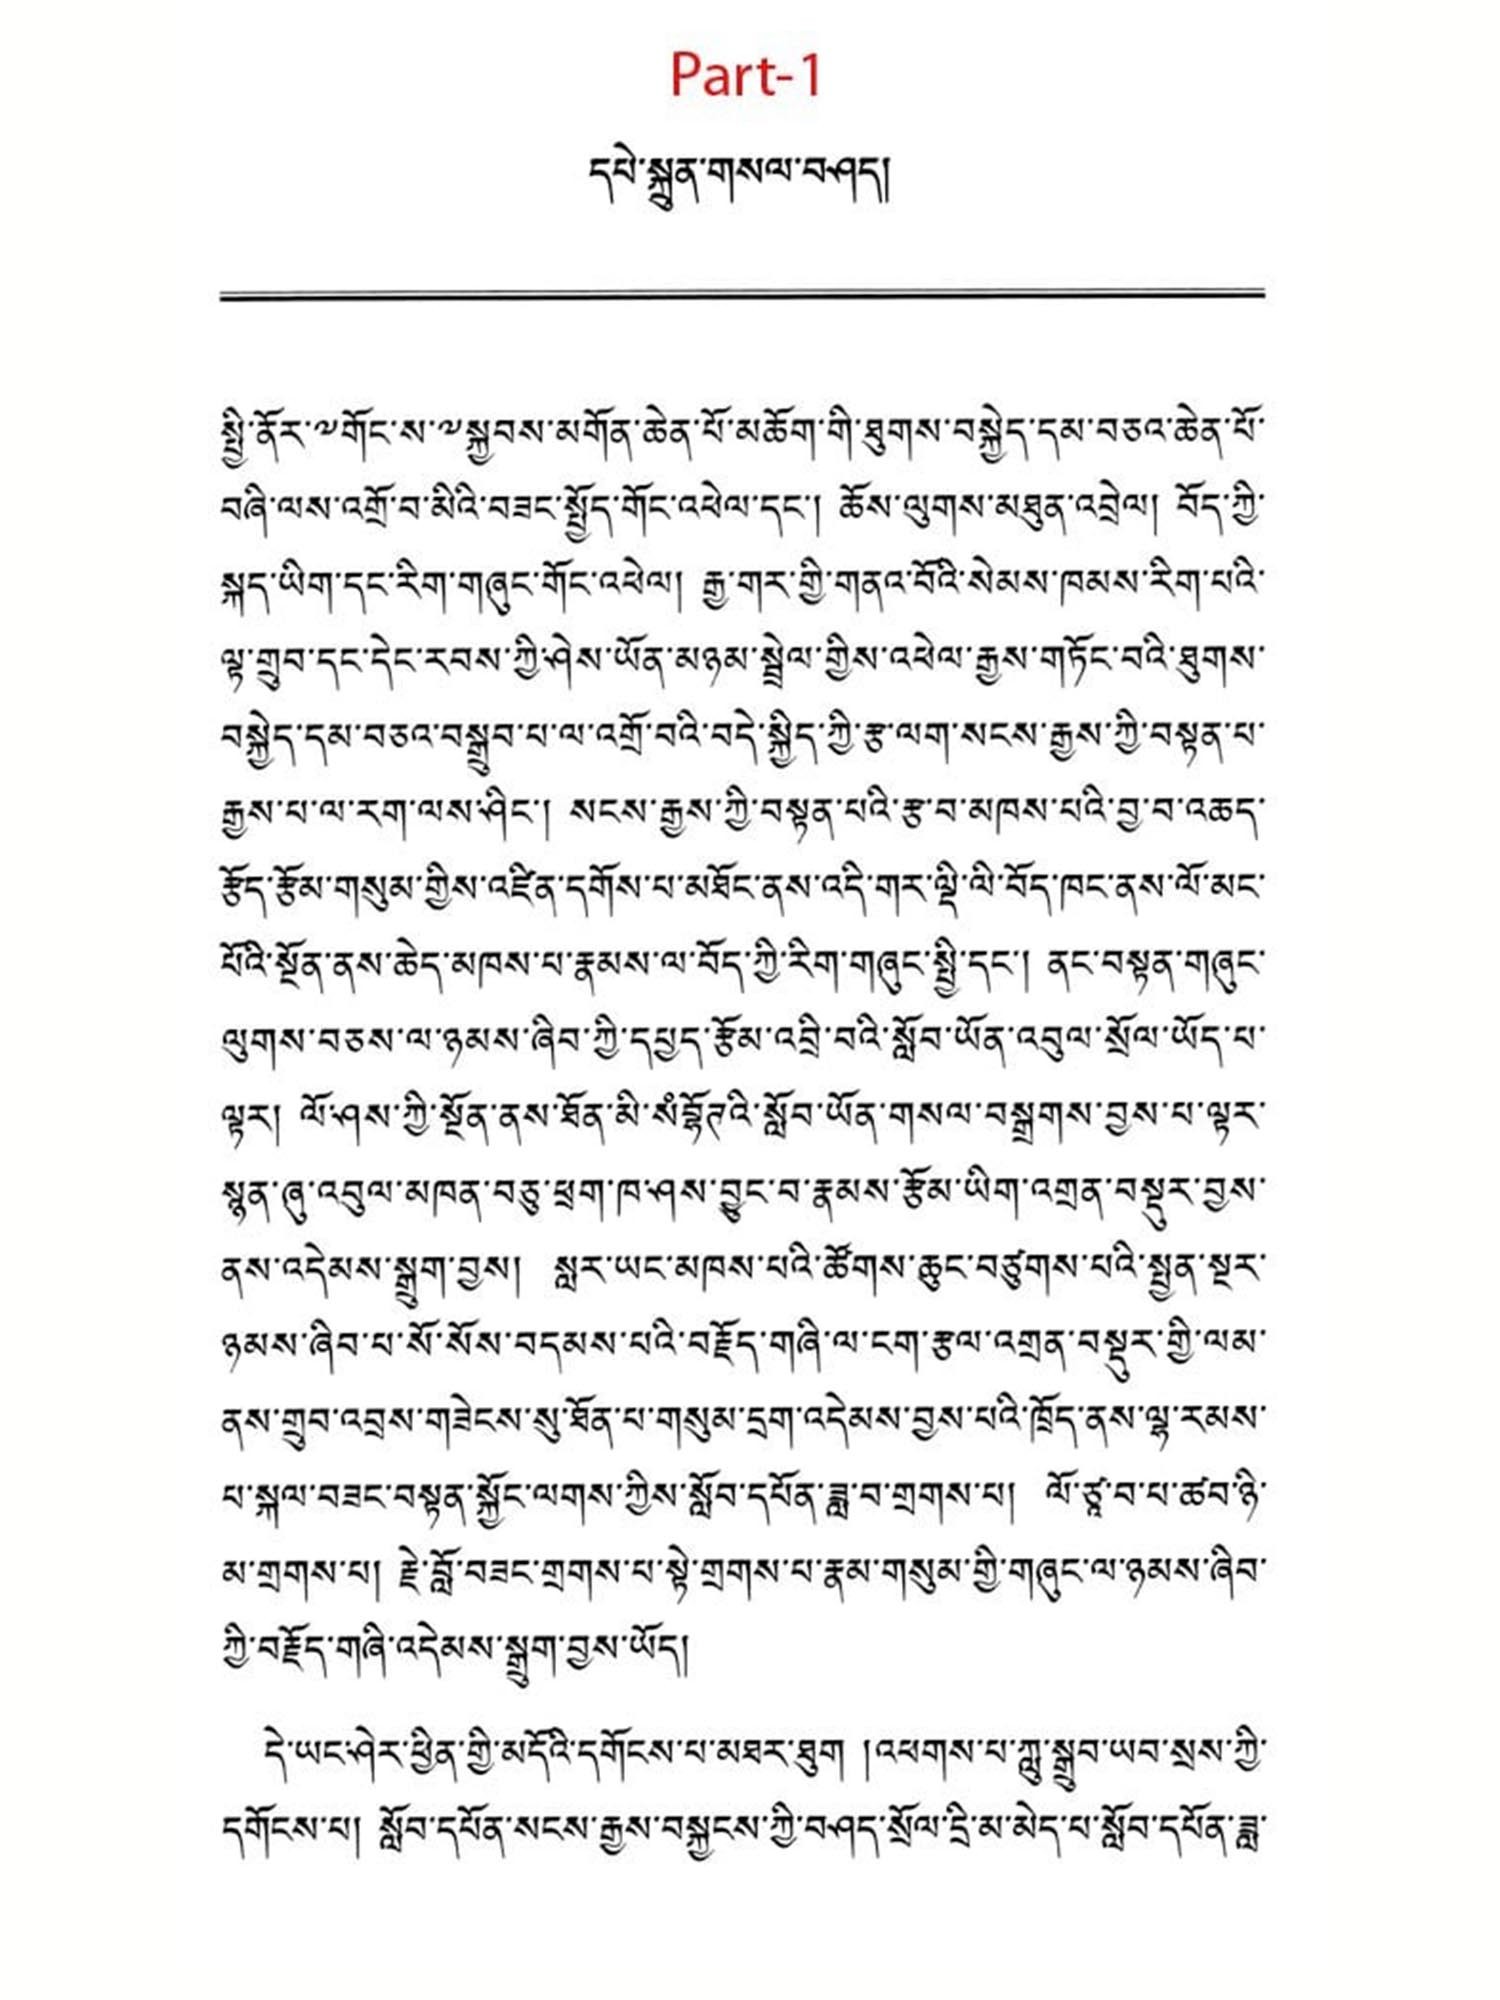 Part-1
དཔེ་སྐྲུན་གསལ་བཤད།
སྤྱི་ནོར་༧གོང་ས་༧སྐྱབས་མགོན་ཆེན་པོ་མཆོག་གི་ཐུགས་བསྐྱེད་དམ་བཅའ་ཆེན་པོ་
བཞི་ལས་འགྲོ་བ་མིའི་བཟང་སྤྱོད་གོང་འཕེལ་དང་། ཆོས་ལུགས་མཐུན་འབྲེལ། བོད་ཀྱི་
སྐད་ཡིག་དང་རིག་གཞུང་གོང་འཕེལ། རྒྱ་གར་གྱི་གནའ་བོའི་སེམས་ཁམས་རིག་པའི་
ལྟ་གྲུབ་དང་དེང་རབས་ཀྱི་ཤེས་ཡོན་མཉམ་སྦྲེལ་གྱིས་འཕེལ་རྒྱས་གཏོང་བའི་ཐུགས་
བསྐྱེད་དམ་བཅའ་བསྒྲུབ་པ་ལ་འགྲོ་བའི་བདེ་སྐྱིད་ཀྱི་རྩ་ལག་སངས་རྒྱས་ཀྱི་བསྟན་པ་
རྒྱས་པ་ལ་རག་ལས་ཤིང་། སངས་རྒྱས་ཀྱི་བསྟན་པའི་རྩ་བ་མཁས་པའི་བྱ་བ་འཆད་
རྩོད་རྩོམ་གསུམ་གྱིས་འཛིན་དགོས་པ་མཐོང་ནས་འདི་གར་ལྡི་ལི་བོད་ཁང་ནས་ལོ་མང་
པོའི་སྔོན་ནས་ཆེད་མཁས་པ་རྣམས་ལ་བོད་ཀྱི་རིག་གཞུང་སྤྱི་དང་། ནང་བསྟན་གཞུང་
ལུགས་བཅས་ལ་ཉམས་ཞིབ་ཀྱི་དཔྱད་རྩོམ་འབྲི་བའི་སློབ་ཡོན་འབུལ་སྲོལ་ཡོད་པ་
ལྟར། ལོ་ཤས་ཀྱི་སྔོན་ནས་ཐོན་མི་སཾབྷོཊའི་སློབ་ཡོན་གསལ་བསྒྲགས་བྱས་པ་ལྟར་
སྙན་ཞུ་འབུལ་མཁན་བཅུ་ཕྲག་ཁ་ཤས་བྱུང་བ་རྣམས་རྩོམ་ཡིག་འགྲན་བསྡུར་བྱས་
ནས་འདེམས་སྒྲུག་བྱས། སླར་ཡང་མཁས་པའི་ཚོགས་ཆུང་བཙུགས་པའི་སྤྱན་སྔར་
ཉམས་ཞིབ་པ་སོ་སོས་བདམས་པའི་བརྗོད་གཞི་ལ་ངག་རྩལ་འགྲན་བསྡུར་གྱི་ལམ་
ནས་གྲུབ་འབྲས་གཟེངས་སུ་ཐོན་པ་གསུམ་དྲག་འདེམས་བྱས་པའི་ཁྲོད་ནས་ལྷ་རམས་
པ་སྐལ་བཟང་བསྟན་སྐྱོང་ལགས་ཀྱིས་སློབ་དཔོན་ཟླ་བ་གྲགས་པ། ལོ་ཙཱ་བ་པ་ཚབ་ཉི་
མ་གྲགས་པ། རྗེ་བློ་བཟང་གྲགས་པ་སྟེ་གྲགས་པ་རྣམ་གསུམ་གྱི་གཞུང་ལ་ཉམས་ཞིབ་
ཀྱི་བརྗོད་གཞི་འདེམས་སྒྲུག་བྱས་ཡོད།
དེ་ཡང་ཤེར་ཕྱིན་གྱི་མདོའི་དགོངས་པ་མཐར་ཐུག །འཕགས་པ་ཀླུ་སྒྲུབ་ཡབ་སྲས་ཀྱི་
དགོངས་པ། སློབ་དཔོན་སངས་རྒྱས་བསྐྱངས་ཀྱི་བཤད་སྲོལ་དྲི་མ་མེད་པ་སློབ་དཔོན་ཟླ་